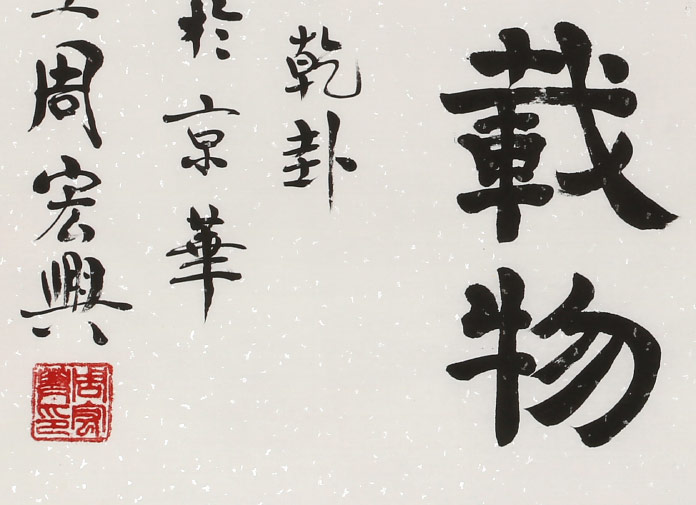 載物
乾卦
於京華
周宏興
周宏興印